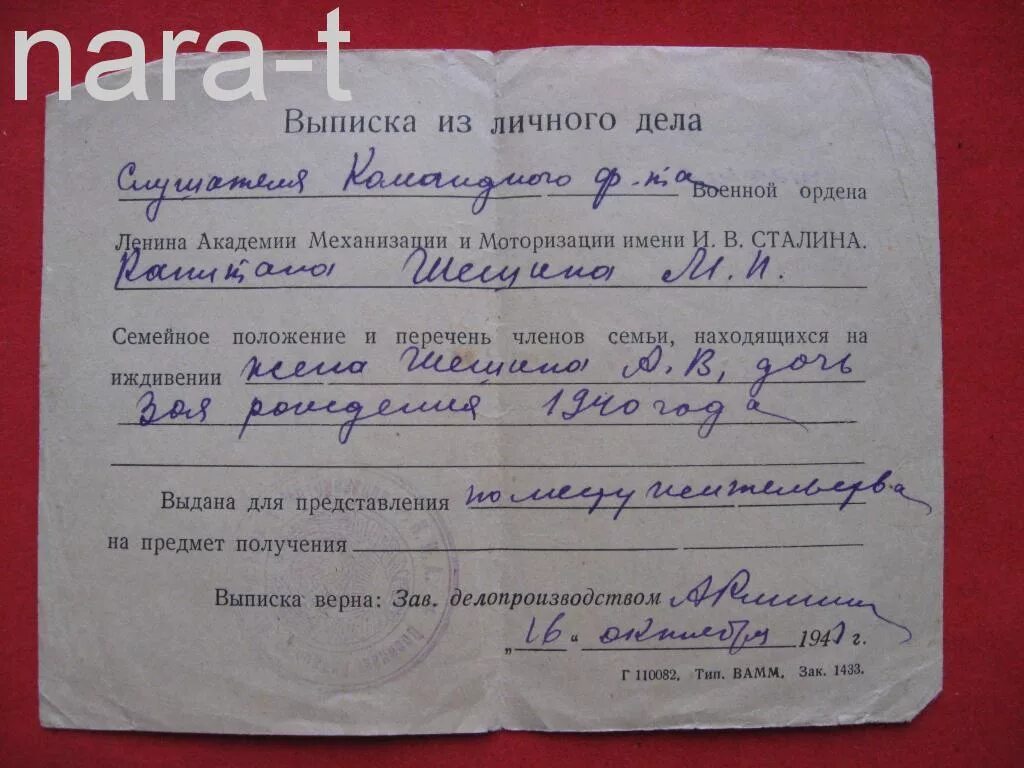 nara-t
Выписка из личного дела
Слушателя Командного ф-та Военной ордена
Ленина Академии Механизации и Моторизации имени И. В. СТАЛИНА.
Капитана Шешина М. П.
Семейное положение и перечень членов семьи, находящихся на
иждивении жена Шешина А. В, дочь
Зоя рождения 1940 года
Выдана для представления по месту жительства
на предмет получения
Выписка верна: Зав. делопроизводством
„16 “ октября 194 г.
Г 110082. Тип. ВАММ. Зак. 1433.